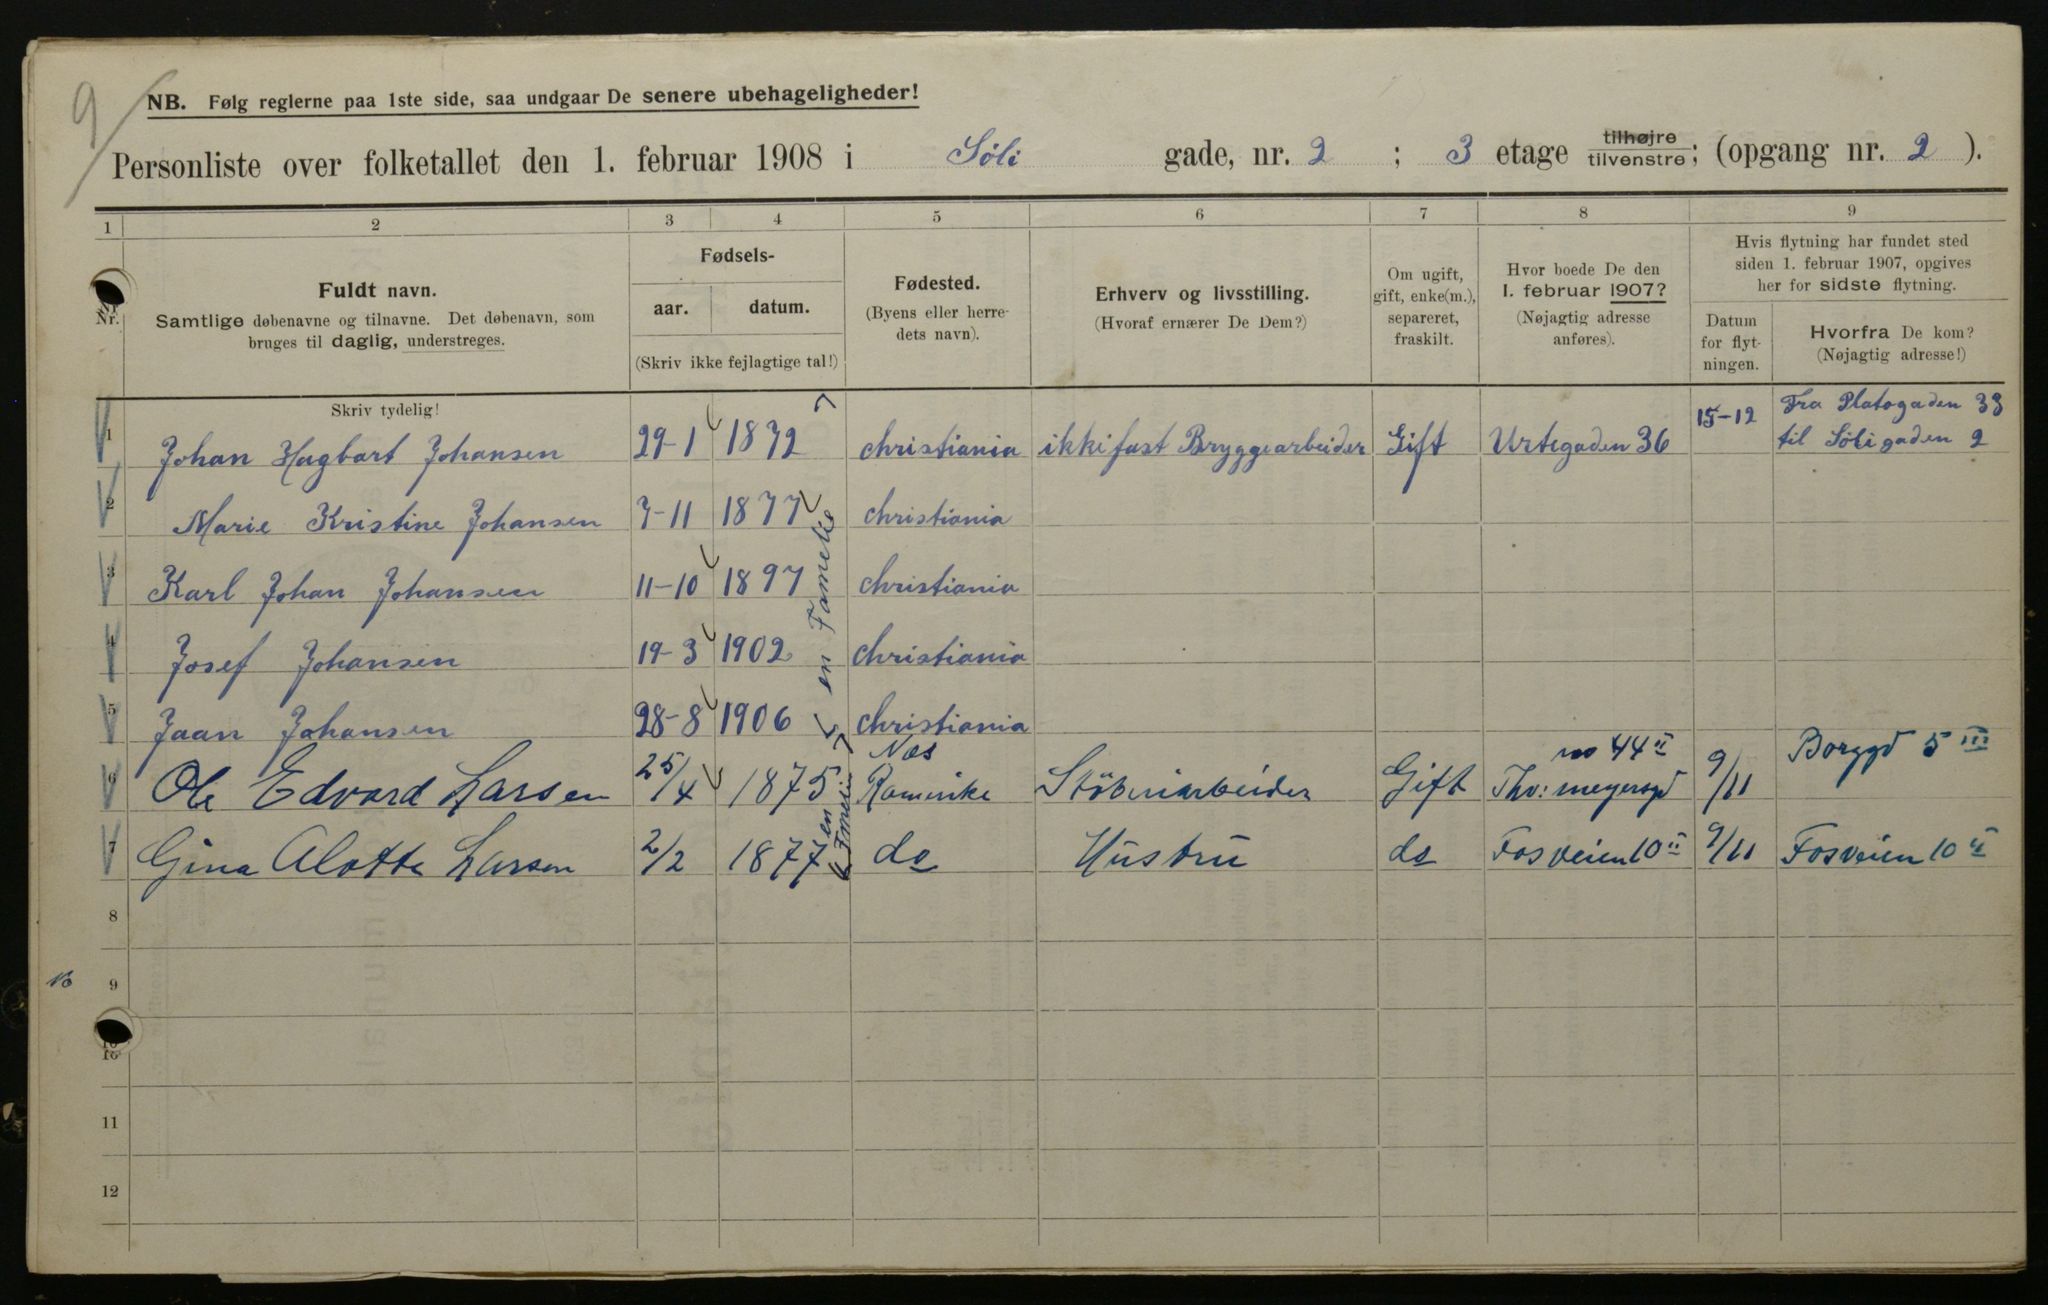 9
NB. Følg reglerne paa 1ste side, saa undgaar De senere ubehageligheder!
Personliste over folketallet den 1. februar 1908 i Søli gade, nr. 2 ; 3 etage tilhøjre tilvenstre; (opgang nr. 2 ).
1 2 3 4 5 6 7 8 9
Nr.
Fuldt navn.
Samtlige døbenavne og tilnavne. Det døbenavn, som
bruges til daglig, understreges.
Skriv tydelig!
Fødsels-
aar. datum.
(Skriv ikke fejlagtige tal!)
Fødested.
(Byens eller herre-
dets navn).
Erhverv og livsstilling.
(Hvoraf ernærer De Dem?)
Om ugift,
gift, enke(m.),
separeret,
fraskilt.
Hvor boede De den
1. februar 1907?
(Nøjagtig adresse
anføres).
Hvis flytning har fundet sted
siden 1. februar 1907, opgives
her for sidste flytning.
Datum
for flyt-
ningen.
Hvorfra De kom?
(Nøjagtig adresse!)
1 Johan Hagbart Johansen 29-1 1872 christiania ikki fast Bryggearbeider Gift Urtegaden 36 15-12 Fra Platogaden 33
til Søligaden 2
2 Marie Kristine Johansen 7-11 1877 christiania
3 Karl Johan Johansen 11-10 1897 christiania
4 Josef Johansen 19-3 1902 christiania
5 Jaan Johansen 28-8 1906 christiania
en Famelie
6 Ole Edvard Larsen 25/4 1875 Næs Romerike Stöberiarbeider Gift no 44 II Thv: meyersgd 9/11 Borggd 5 III
7 Gina Alotta Larsen 2/2 1877 do Hustru do Fosveien 10 II 9/11 Fosveien 10 II
en
8
9
10
11
12